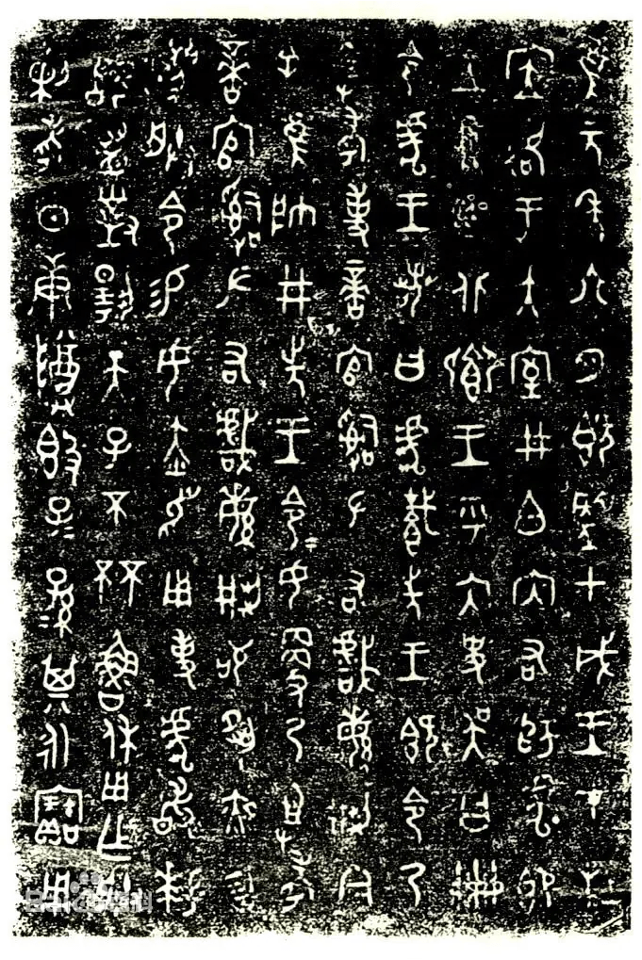 隹元年六月既望甲戌王才杜
㡴格于大室井白內右師虎即
立中廷北鄉王乎內史吳曰冊
令虎王若曰虎先王既令乃
祖考事啻官𤔲左右戲䋣荊今
余隹帥井先王令令女更乃祖考
啻官𤔲左右戲䋣荊苟夙夜勿
灋朕令易女赤舄用事虎敢拜
𩒨首對揚天子不杯魯休用乍朕
剌考日庚尊𣪘子孫其永寶用